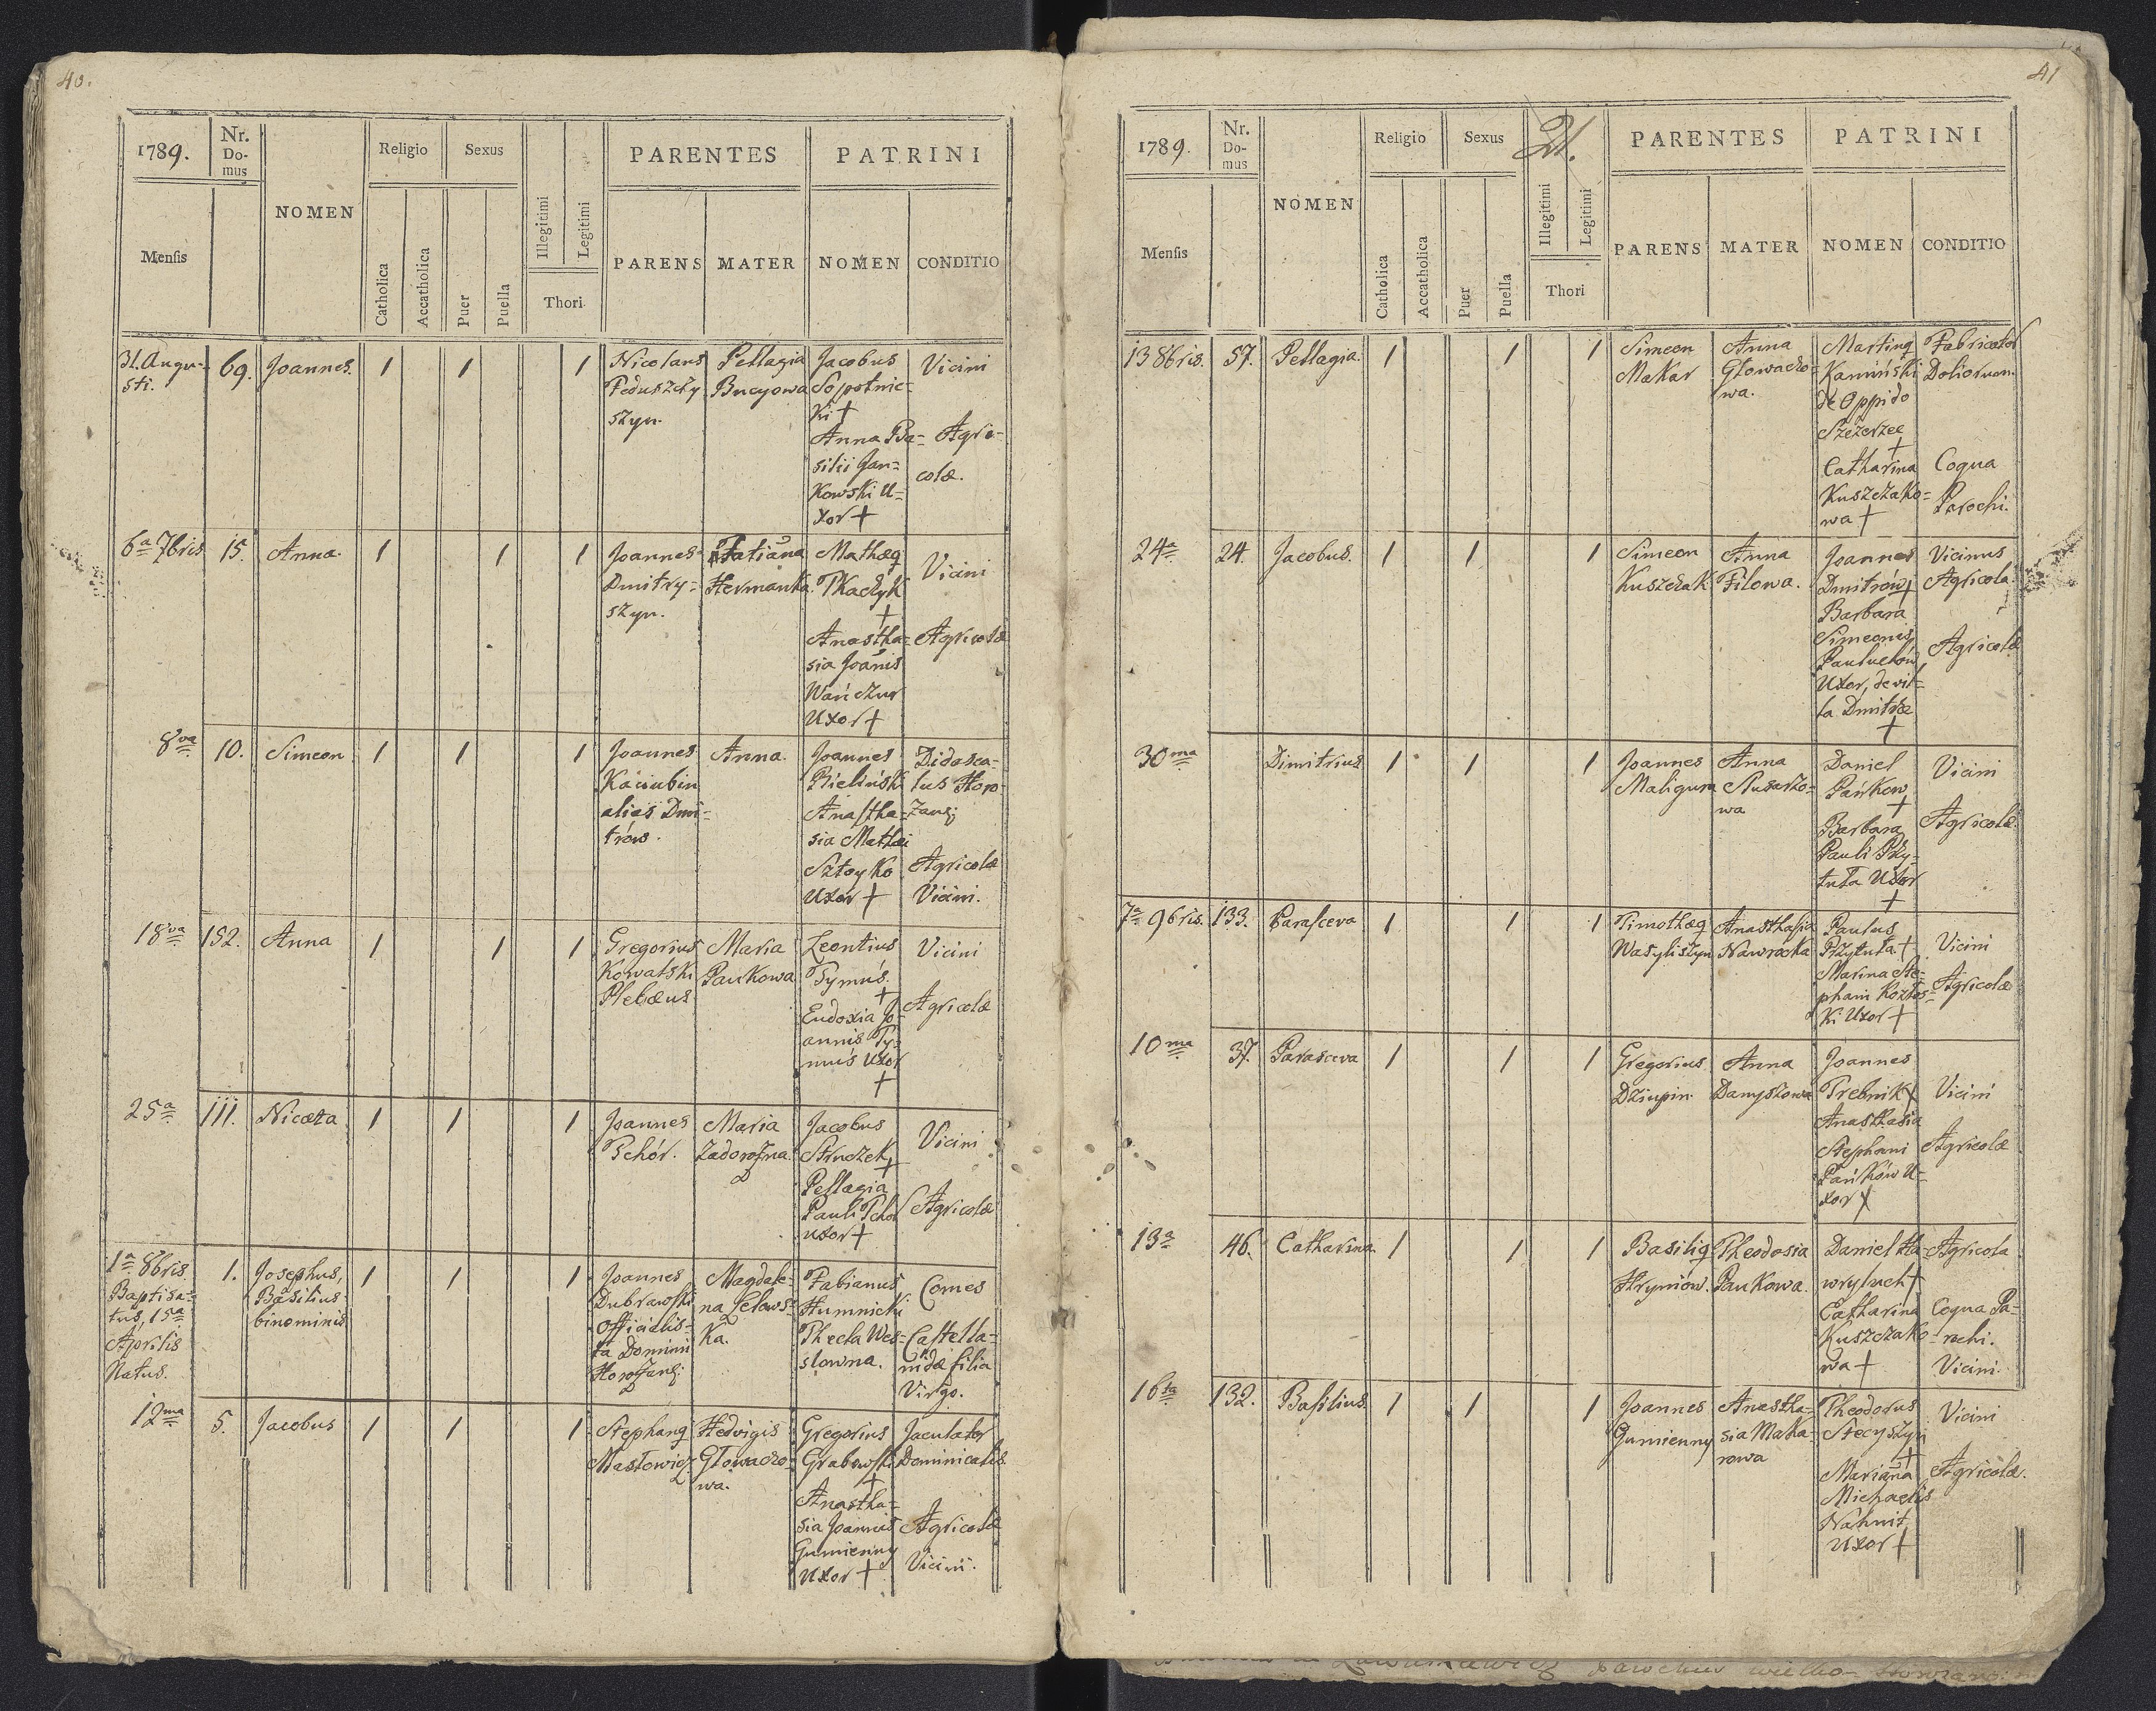 40.
1789.
Nr.
Do-
mus
NOMEN
Religio
Sexus
Illegitimi
Legitimi
PARENTES
PATRINI
Mensis
Catholica
Accatholica
Puer
Puella
Thori
PARENS
MATER
NOMEN
CONDITIO
31. Augu-
sti.
69.
Joannes.
1
1
1
Nicolaus
Feduszczy
szyn.
Pellagia
Bucyowa
Jacobus
Sopotnic-
ki +
Anna Ba-
silii Jan-
kowski U-
xor +
Vicini
Agri-
colæ.
6a 7bris
15.
Anna.
1
1
1
Joannes
Dmitry-
szyn.
Tatiana
Hermanka
Mathæq
Tkaczyk
+
Anastha-
sia Joanis
Wańczur
Uxor +
Vicini
Agricolæ
8va
10.
Simeon
1
1
1
Joannes
Kaciubin
alias Dmi-
trów.
Anna.
Joannes
Bieliński
Anastha-
sia Mathæi
Sztoyko
Uxor +
Didasca-
lus Horo-
żanj
Agricolæ
Vicini.
18va
152.
Anna
1
1
1
Gregorius
Kowalski
Plebæus
Maria
Paukowa
Leontius
Tymuś.
+
Eudoxia Jo-
annis Ty-
muś Uxor
+
Vicini
Agricolæ
25a
111.
Nicæta
1
1
1
Joannes
Tchór.
Maria
Zadorożna.
Jacobus
Struczek
+
Pellagia
Pauli Tchor
uxor +
Vicini
Agricolæ
1a 8bris
Baptisa-
tus, 15a
Aprilis
Natus.
1.
Josephus,
Basilius
binominis
1
1
1
Joannes
Dubrawski
Officialis-
ta Dominii
Horożanj.
Magdale-
na Selows-
ka.
Fabianus
Humnicki
Thecla Wes-
slowna.
Comes
Castella-
nidæ filia
Virgo.
12ma
5.
Jacobus
1
1
1
Stephanq
Masłowicz
Hedvigis
Głowaczo-
wa.
Gregorius
Grabowski
+
Anastha-
sia Joannis
Gumienny
Uxor +
Jaculator
Dominicalis
Agricolæ
Vicini.
41
1789.
Nr.
Do-
mus
NOMEN
Religio
Sexus
21.
Illegitimi
Legitimi
PARENTES
PATRINI
Mensis
Catholica
Accatholica
Puer
Puella
Thori
PARENS
MATER
NOMEN
CONDITIO
13 8bris.
57.
Pellagia.
1
1
1
Simeon
Makar
Anna
Głowaczo-
wa.
Martinq
Kamiński
de Oppido
Szczerzec
+
Catharina
Kuszczako-
wa +
Fabricator
Doliorum.
Coqua
Parochi.
24a
24.
Jacobus.
1
1
1
Simeon
Kuszczak
Anna
Filowa.
Joannes
Dmitrów +
Barbara
Simeonis
Pauluchów
Uxor, de vil-
la Dmitræ
+
Vicinus
Agricola.
Agricolæ
30ma
Dimitrius
1
1
1
Joannes
Maligura
Anna
Slusarzo-
wa
Daniel
Pańkow
+
Barbara
Pauli Pży-
tuła Uxor
+
Vicini
Agricolæ.
7a 9bris.
133.
Parasceva
1
1
1
Timothæq
Wasyliszyn
Anasthasia
Nawrocka
Paulus
Pżytuła +
Marina Ste-
phani Kozłos-
ki Uxor +
Vicini
Agricolæ
10ma
37.
Parasceva
1
1
1
Gregorius
Dziupin.
Anna
Danyszowa
Joannes
Trebnik +
Anasthasia
Stephani
Pańków U-
xor +
Vicini
Agricolæ
13a
46.
Catharina.
1
1
1
Basiliq
Hryniów.
Theodosia
Paukowa.
Daniel Ha-
wryluch +
Catharina
Kuszczako-
wa +
Agricola
Coqua Pa-
rochi.
Vicini.
16ta
132.
Basilius.
1
1
1
Joannes
Gumienny
Anastha-
sia Maka-
rowa
Theodorus
Stecyszyn
+
Mariana
Michaelis
Nahnit
Uxor +
Vicini
Agricolæ.